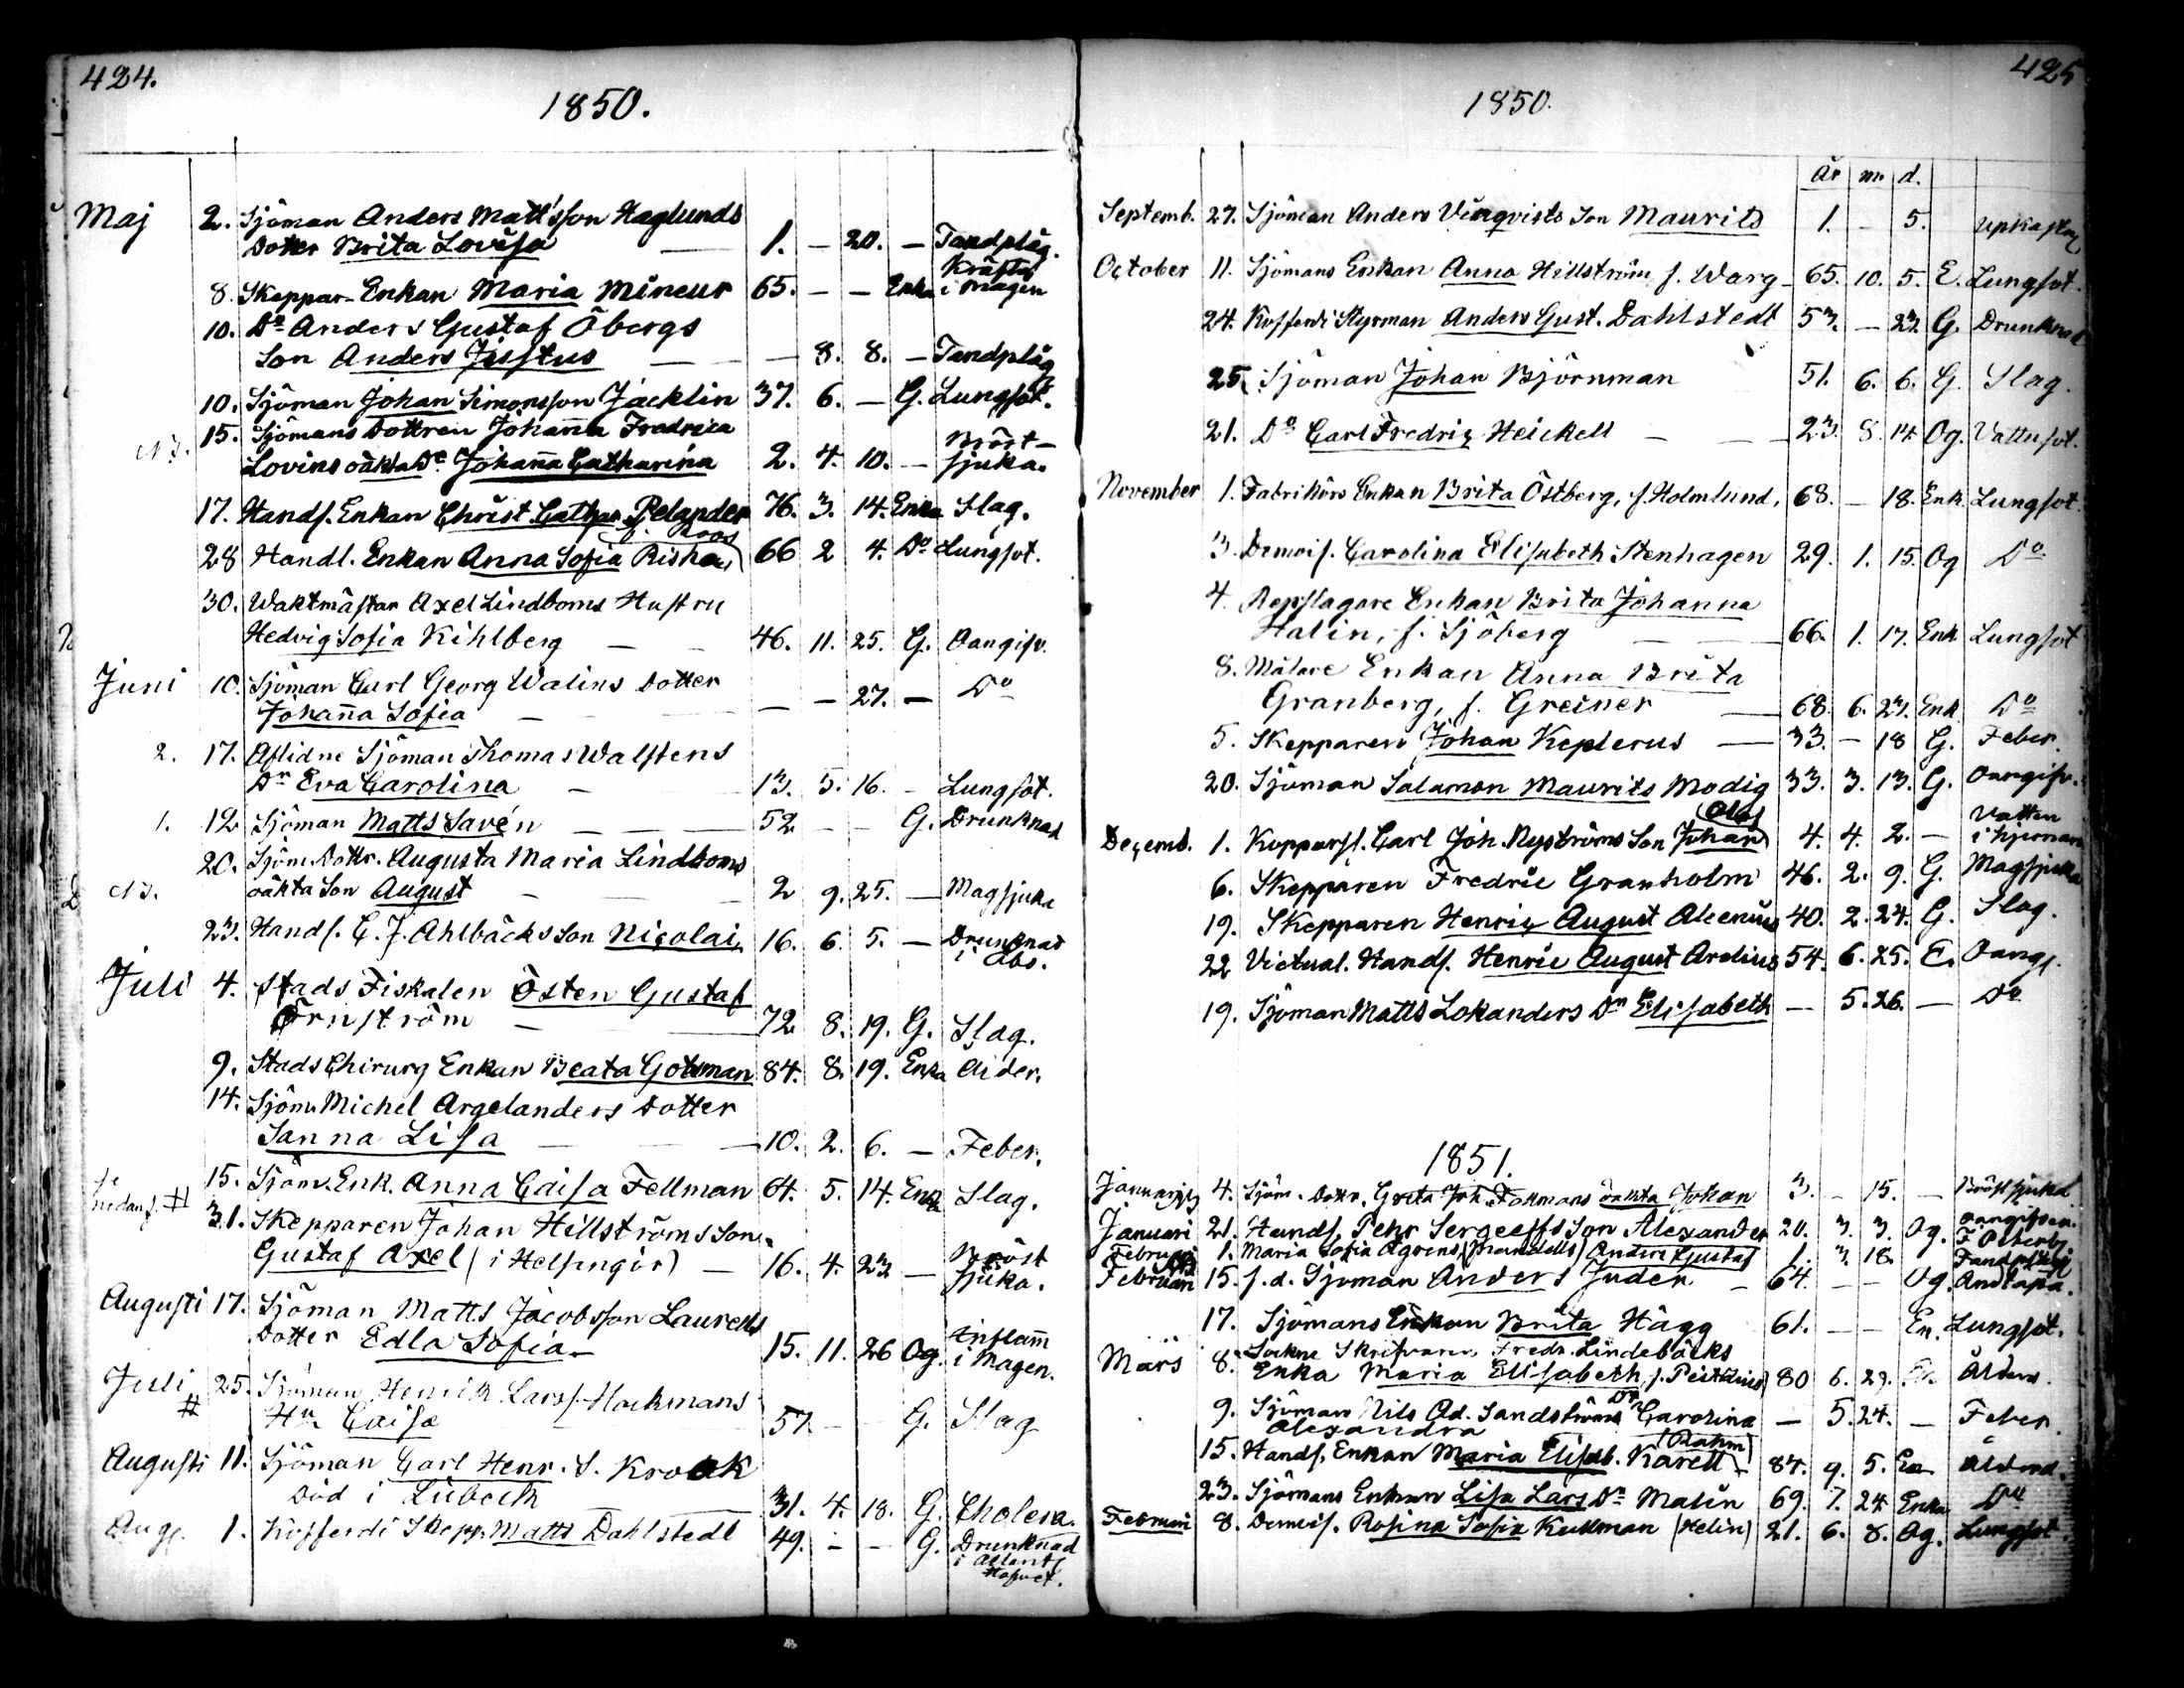 424.
1850.
Maj 2. Sjöman Anders Mattsson Haglunds
Dotter Brita Lovisa — 1. — 20. — Tandplåg.
8. Skeppar-Enkan Maria Mineur 65. — — Enka Kräfta
i Magen
10. Do Anders Gustaf Öbergs
Son Anders Justus — — 8. 8. — Tandplåg
10. Sjöman Johan Simonsson Jacklin 37. 6. — G. Lungsot.
15. Sjömans Dottren Johanna Fredrica
Lovins oäkta Dr Johanna Catharina 2. 4. 10. — Bröst-
sjuka.
17. Handl. Enkan Christ. Cathar. Pelander 76. 3. 14. Enka Slag.
f. Roos
28 Handl. Enkan Anna Sofia Riska 66 2 4. Do Lungsot.
30. Waktmästar Axel Lindboms Hustru
Hedvig Sofia Kihlberg — 46. 11. 25. G. Oangifv.
Juni 10. Sjöman Carl Georg Walins Dotter
Johanna Sofia — — — 27. — Do
2. 17. Aflidne Sjöman Thomas Walstens
Dr Eva Carolina — 13. 5. 16. — Lungsot.
1. 12 Sjöman Matts Savén — 52 — — G. Drunknad
20. Sjöm. Dottr. Augusta Maria Lindboms
oäkta Son August — 2 9. 25. — Magsjuka
23. Handl. C. J. Ahlbäcks Son Nicolai 16. 6. 5. — Drunknad
i Åbo.
Juli 4. Stads Fiskalen Östen Gustaf
Örnström — 72 8. 19. G. Slag.
9. Stads Chirurg Enkan Beata Gotsman 84. 8. 19. Enka Ålder.
14. Sjöm. Michel Argelanders Dotter
Sanna Lisa — 10. 2. 6. — Feber.
se
nedanf. # 15. Sjöm. Enk. Anna Caisa Fellman 64. 5. 14. Enk Slag.
31. Skepparen Johan Hillströms Son
Gustaf Axel (i Helsingör) — 16. 4. 23 — Bröst
sjuka.
Augusti 17. Sjöman Matts Jacobsson Laurells
Dotter Edla Sofia — 15. 11. 26 Og. Inflam̄
i Magen.
Juli 25. Sjöman Henrik Larss. Hackmans
# Hu Caisa 57. — — G. Slag
Augusti 11. Sjöman Carl Henr. S. Krook
Död i Lübeck — 31. 4. 18. G. Cholera.
Aug. 1. Kofferdi Skepp. Matts Dahlstedt 49. — — G. Drunknad
i Atlant
Hafvet.
425
1850.
År m. d.
Septemb. 27. Sjöman Anders Vinqvists Son Maurits 1. — 5. upkastn
October 11. Sjömans Enkan Anna Hillström f. Warg 65. 10. 5. E. Lungsot.
24. Kofferdi Styrman Anders Gust. Dahlstedt 53. — 23 G. Drunknad
25. Sjöman Johan Björnman 51. 6. 6. G. Slag.
21. Do Carl Fredric Heickell — — 23. 8. 14 Og. Vattusot.
November 1. Fabrikörs Enkan Brita Östberg, f. Holmlund, 68. — 18. Enk. Lungsot.
3. Demois. Carolina Elisabeth Stenhagen 29. 1. 15. Og Do
4. Repslagare Enkan Brita Johanna
Halin, f. Sjöberg — 66. 1. 17. Enk Lungsot
8. Målare Enkan Anna Brita
Granberg, f. Greiner — 68. 6. 27. Enk Do
5. Skepparen Johan Keplerus — 33. — 18 G. Feber.
20. Sjöman Salamon Maurits Modig 33. 3. 13. G. Oangifv.
Olof
Decemb. 1. Kopparsl. Carl Joh. Nyströms Son Johan 4. 4. 2. — Vatten
i hjernan
6. Skepparen Fredric Granholm 46. 2. 9. G. Magsjuka
19. Skepparen Henric August Alcenius 40. 2. 24. G. Slag.
22 Victual. Handl. Henric August Arelius 54. 6. 25. E. Oang.
19. Sjöman Matts Lokanders Dr Elisabeth — 5. 26. — Do
1851.
Januari 4. Sjöm. Dottr. Greta Joh. oäkta Johan 3. — 15. — Bröstsjuka
Januari 21. Handl. Pehr Sergeeffs Son Alexander 20. 3. 3. Og. oangifven.
Februari 1. Maria Sofia Ågrens (Mandells) Anders Gustaf 1. 3. 18. Tandplåg
Februari 15. f. d. Sjöman Anders Juden — 64. — — Og. Andtäpa.
17. Sjömans Enkan Brita Hägg 61. — — En. Lungsot.
Mars 8. Sockne Skrifvaren Fredr. Lindebäcks
Enka Maria Elisabeth, f. 80 6. 29. En Ålderd.
9. Sjöman Nils Ad. Sandströms Dr Carolina — 5. 24. — Feber.
Alexandra
15. Handl. Enkan Maria Elisab. Karell (Rahm) 84. 9. 5. En Ålderd.
23. Sjömans Enkan Lisa Lars Dr Malin 69. 7. 24 Enka Do
Februari 8. Demois. Rosina Sofia Kullman (Helin) 21. 6. 8. Og. Lungsot.